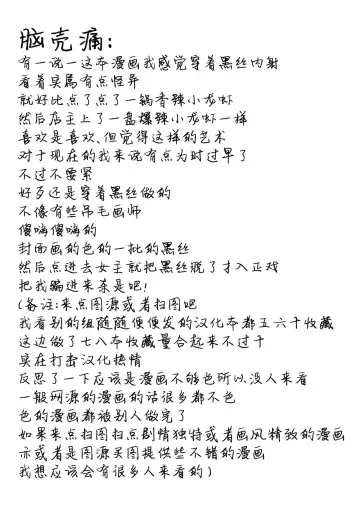 脑壳痛:
有一说一这本漫画我感觉穿着黑丝内射
看着实属有点怪异
就好比点了点了一锅香辣小龙虾
然后店主上了一盘爆辣小龙虾一样
喜欢是喜欢,但觉得这样的艺术
对于现在的我来说有点为时过早了
不过不要紧
好歹还是穿着黑丝做的
不像有些吊毛画师
傻嗨傻嗨的
封面画的色的一批的黑丝
然后点进去女主就把黑丝脱了才入正戏
把我骗进来杀是吧!
(备注:来点图源或者扫图吧
我看别的组随随便便发的汉化本都五六千收藏
这边做了七八本收藏量合起来不过千
实在打击汉化热情
反思了一下应该是漫画不够色所以没人来看
一般网源的漫画的话很多都不色
色的漫画都被别人做完了
如果来点扫图扫点剧情独特或者画风精致的漫画
亦或者是图源买图提供些不错的漫画
我想应该会有很多人来看的)